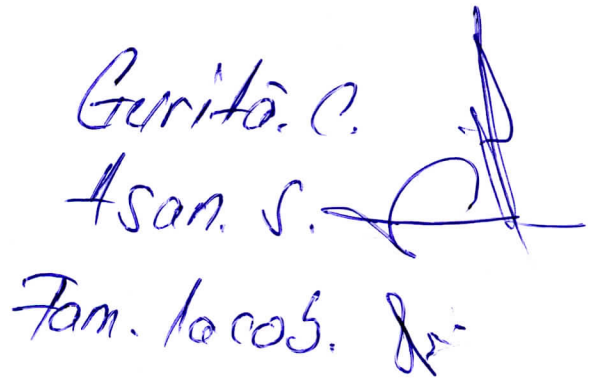 Guriță. C.
Asan. S.
Fam. Iacob.